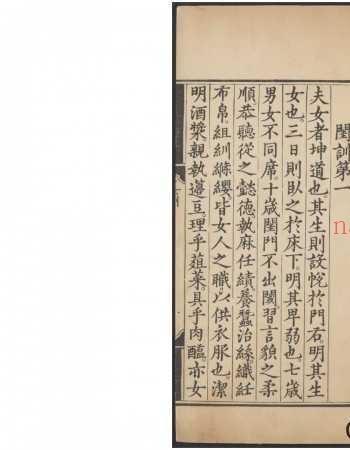 閨訓第一
夫女者坤道也其生則設帨於門右明其生
女也三日則臥之於床下明其卑弱也七歲
男女不同席十歲閨門不出閫習言貌之柔
順恭聽從之懿德執麻任績養蠶治絲織紝
布帛組紃綈纓皆女人之職以供衣服也潔
明酒漿親執籩豆理乎葅菜具乎肉醢亦女